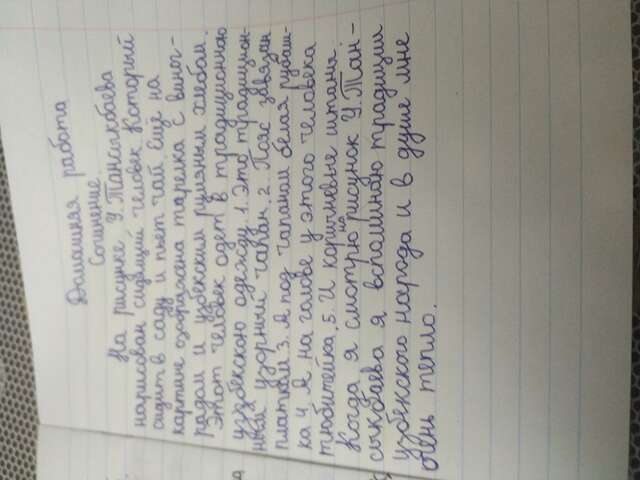 Домашняя работа
Сочинение.
На рисунке У. Тансыкбаева
нарисован сидящий человек Который
сидит в саду и пьёт чай Ещё на
картине озображена тарелка с виног-
радом и узбекским румяным хлебом.
Этот человек одет в традиционною
узбекскою одежду. 1. Это традицион-
ный узорный чапан. 2. Пояс завязан
платком 3. А под чапаном белая рубаш-
ка 4. А на голове у этого человека
тюбитейка. 5. И коричневые штаны.
Когда я смотрю на рисунок У. Тан-
сыкбаева я вспоминаю традиции
узбекского народа и в душе мне
очень тепло.